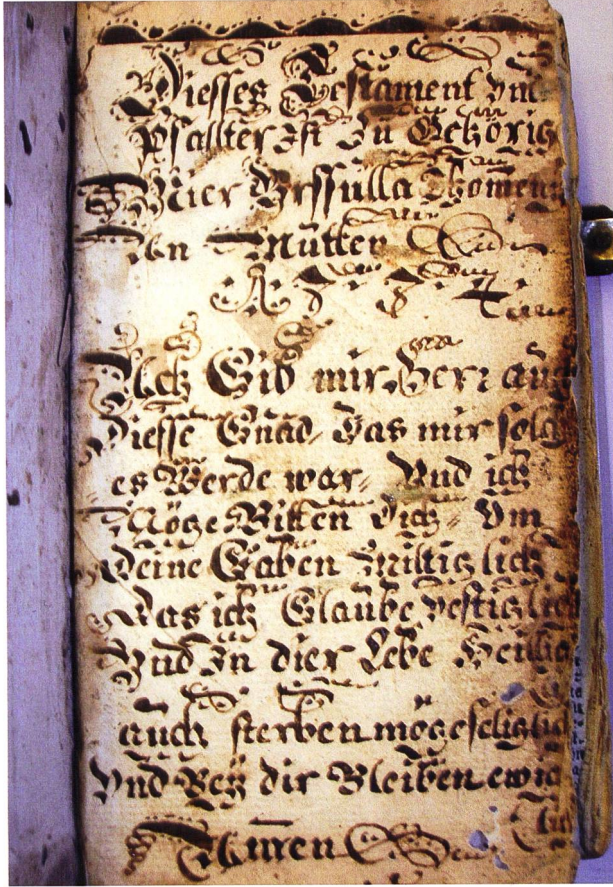 Diesses Testament vnd
psallter Ist Zu Gehörig
Mier Vrssulla Thomen
In Mutten
A 7 8 4
Ach Gib mir, Herr auch
Diesse Gnad, Das mir solch
es Werde war, Und ich
Möge Bitten Dich, Um
Deine Gaben Miltig lich
Das ich Glaube vestig lich
Und in dier Lebe Heilig
auch sterben möge seliglich
Vnd Bey dir Bleiben ewig
lich
Amen